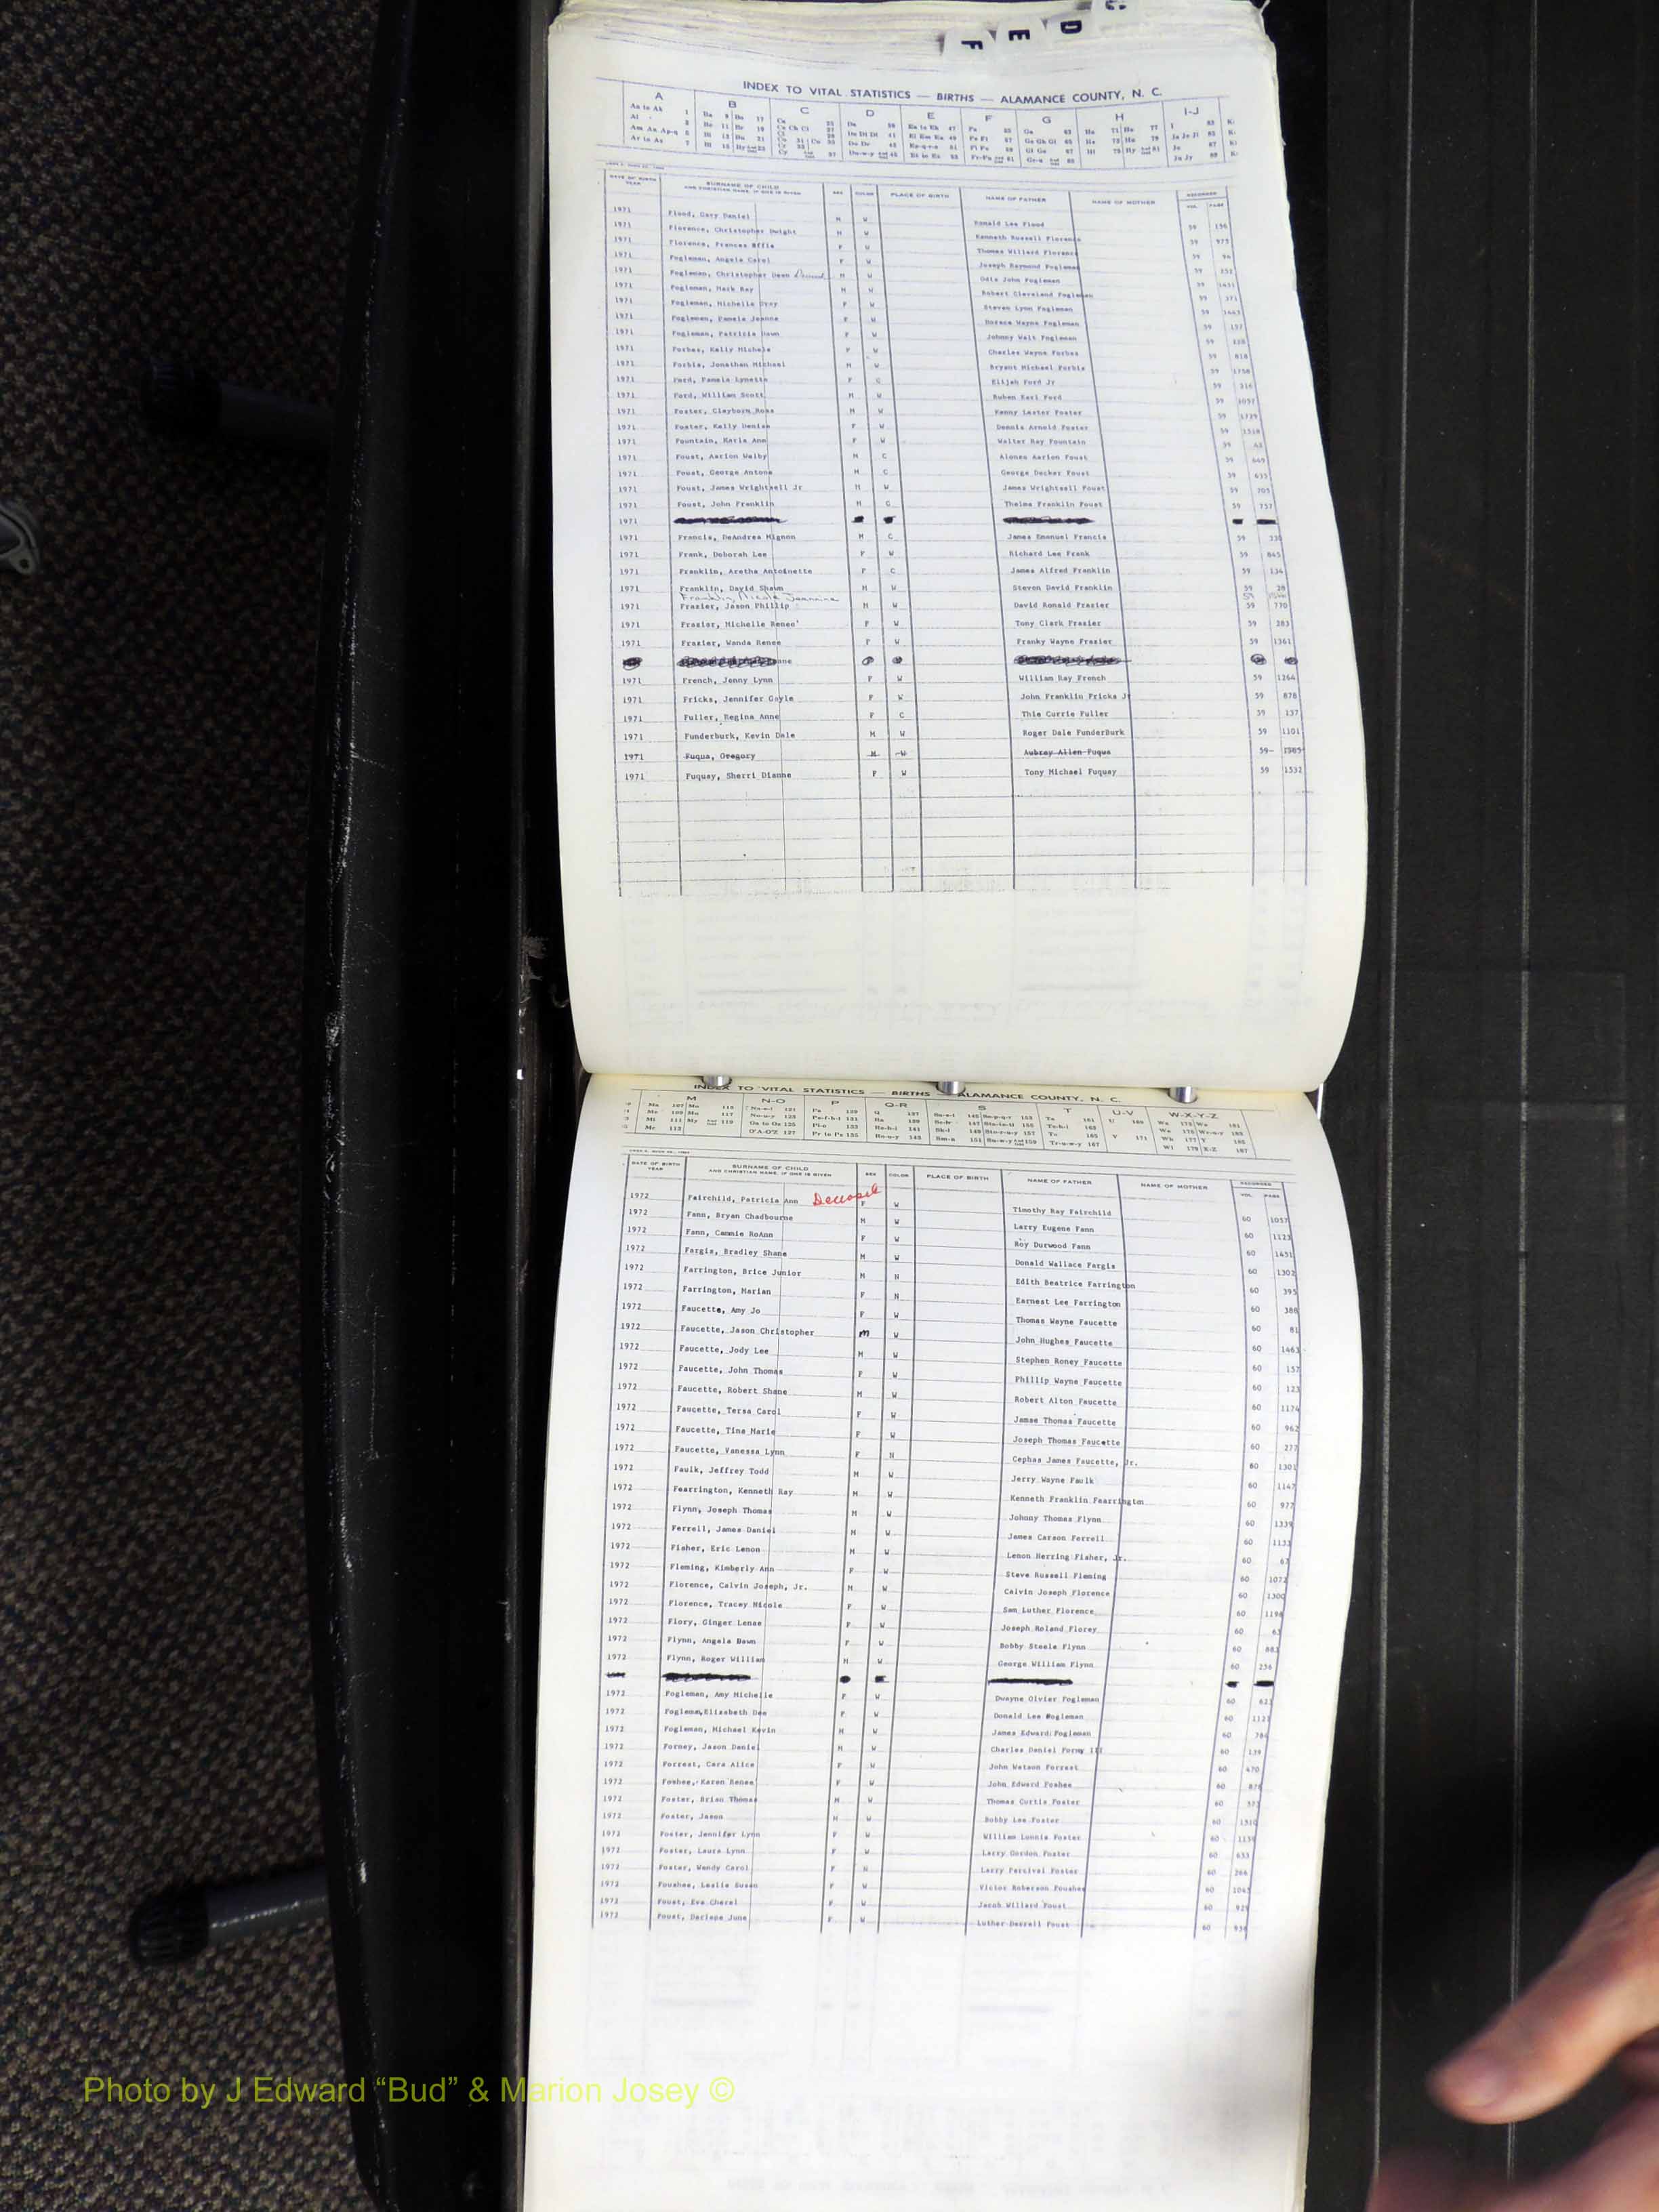 F E D C
INDEX TO VITAL STATISTICS — BIRTHS — ALAMANCE COUNTY, N. C.
A B C D E F G H I-J
DATE OF BIRTH YEAR SURNAME OF CHILD AND CHRISTIAN NAME, IF ONE IS GIVEN SEX COLOR PLACE OF BIRTH NAME OF FATHER NAME OF MOTHER RECORDED VOL. PAGE
1971 Flood, Gary Daniel M W Ronald Lee Flood 59
1971 Florence, Christopher Dwight M W Kenneth Russell Florence 59
1971 Florence, Frances Effie F W Thomas Willard Florence 59
1971 Fogleman, Angela Carol F W Joseph Raymond Fogleman 59
1971 Fogleman, Christopher Dean M W Odis John Fogleman 59
1971 Fogleman, Mark Ray M W Robert Cleveland Fogleman 59
1971 Fogleman, Michelle F W Steven Lynn Fogleman 59
1971 Fogleman, Pamela Jeanne F W Horace Wayne Fogleman 59
1971 Fogleman, Patricia Dawn F W Johnny Walt Fogleman 59
1971 Forbes, Kelly Michele F W Charles Wayne Forbes 59 818
1971 Forbis, Jonathan Michael M W Bryant Michael Forbis 59
1971 Ford, Pamela Lynette F C Elijah Ford Jr 59 216
1971 Ford, William Scott M W Ruben Karl Ford 59
1971 Foster, Clayborn Ross M W Kenny Lester Foster 59
1971 Foster, Kelly Denise F W Dennis Arnold Foster 59
1971 Fountain, Karla Ann F W Walter Ray Fountain 59
1971 Foust, Aarion Welby M C Alonzo Aarion Foust 59
1971 Foust, George Antone M C George Decker Foust 59
1971 Foust, James Wrightsell Jr M W James Wrightsell Foust 59
1971 Foust, John Franklin M C Thelma Franklin Foust 59 757
1971
1971 Francis, DeAndrea Mignon M C James Emanuel Francis 59
1971 Frank, Deborah Lee F W Richard Lee Frank 59
1971 Franklin, Aretha Antoinette F C James Alfred Franklin 59 134
1971 Franklin, David Shawn M W Steven David Franklin 59 28
Franklin, Nicole Jeannine 59
1971 Frazier, Jason Phillip M W David Ronald Frazier 59 770
1971 Frazier, Michelle Renee' F W Tony Clark Frazier 59 283
1971 Frazier, Wanda Renee F W Franky Wayne Frazier 59 1361
ane
1971 French, Jenny Lynn F W William Ray French 59 1264
1971 Fricks, Jennifer Gayle F W John Franklin Fricks Jr 59 878
1971 Fuller, Regina Anne F C Thie Currie Fuller 59 137
1971 Funderburk, Kevin Dale M W Roger Dale FunderBurk 59 1101
1971 Fuqua, Gregory M W Aubrey Allen Fuqua 59
1971 Fuquay, Sherri Dianne F W Tony Michael Fuquay 59 1532
INDEX TO VITAL STATISTICS — BIRTHS — ALAMANCE COUNTY, N. C.
M N-O P Q-R S T U-V W-X-Y-Z
DATE OF BIRTH YEAR SURNAME OF CHILD AND CHRISTIAN NAME, IF ONE IS GIVEN SEX COLOR PLACE OF BIRTH NAME OF FATHER NAME OF MOTHER RECORDED VOL. PAGE
1972 Fairchild, Patricia Ann Deceased F W Timothy Ray Fairchild 60 1057
1972 Fann, Bryan Chadbourne M W Larry Eugene Fann 60 1123
1972 Fann, Cammie RoAnn F W Roy Durwood Fann 60 1451
1972 Fargis, Bradley Shane M W Donald Wallace Fargis 60 1302
1972 Farrington, Brice Junior M N Edith Beatrice Farrington 60 395
1972 Farrington, Marian F N Earnest Lee Farrington 60 388
1972 Faucette, Amy Jo F W Thomas Wayne Faucette 60 81
1972 Faucette, Jason Christopher M W John Hughes Faucette 60 1463
1972 Faucette, Jody Lee M W Stephen Roney Faucette 60 157
1972 Faucette, John Thomas F W Phillip Wayne Faucette 60 123
1972 Faucette, Robert Shane M W Robert Alton Faucette 60 1174
1972 Faucette, Tersa Carol F W Jamse Thomas Faucette 60 962
1972 Faucette, Tina Marie F W Joseph Thomas Faucette 60 277
1972 Faucette, Vanessa Lynn F N Cephas James Faucette, Jr. 60 1301
1972 Faulk, Jeffrey Todd M W Jerry Wayne Faulk 60 1147
1972 Fearrington, Kenneth Ray M W Kenneth Franklin Fearrington 60 977
1972 Flynn, Joseph Thomas M W Johnny Thomas Flynn 60 1339
1972 Ferrell, James Daniel M W James Carson Ferrell 60 1133
1972 Fisher, Eric Lenon M W Lenon Herring Fisher, Jr. 60
1972 Fleming, Kimberly Ann F W Steve Russell Fleming 60 1072
1972 Florence, Calvin Joseph, Jr. M W Calvin Joseph Florence 60 1300
1972 Florence, Tracey Nicole F W Sam Luther Florence 60 1198
1972 Flory, Ginger Lenae F W Joseph Roland Florey 60
1972 Flynn, Angela Dawn F W Bobby Steele Flynn 60
1972 Flynn, Roger William M W George William Flynn 60 256
1972 Fogleman, Amy Michelle F W Dwayne Olvier Fogleman 60
1972 Fogleman,Elizabeth Dee F W Donald Lee Fogleman 60 1121
1972 Fogleman, Michael Kevin M W James Edward Fogleman 60
1972 Forney, Jason Daniel M W Charles Daniel Forny III 60 139
1972 Forrest, Cara Alice F W John Watson Forrest 60 470
1972 Foshee, Karen Renee F W John Edward Foshee 60
1972 Foster, Brian Thomas M W Thomas Curtis Foster 60
1972 Foster, Jason M W Bobby Lee Foster 60 1310
1972 Foster, Jennifer Lynn F W William Lonnie Foster 60 1139
1972 Foster, Laura Lynn F W Larry Gordon Foster 60 633
1972 Foster, Wendy Carol F N Larry Percival Foster 60 266
1972 Foushee, Leslie Susan F W Victor Roberson Foushee 60
1972 Foust, Eva Cherel F W Jacob Willard Foust 60 929
1972 Foust, Darlene June F W Luther Darrell Foust 60
Photo by J Edward “Bud” & Marion Josey ©